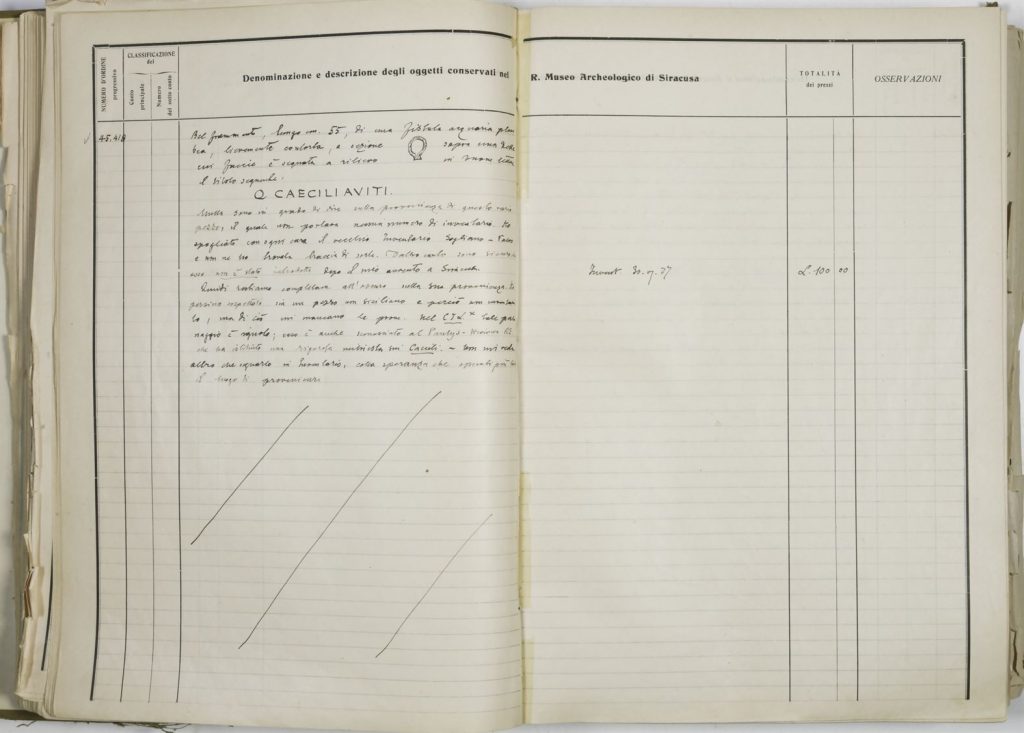 NUMERO D'ORDINE
progressivo
CLASSIFICAZIONE
del
Conto
principale
Numero
del sotto conto
Denominazione e descrizione degli oggetti conservati nel R. Museo Archeologico di Siracusa
TOTALITÀ
dei prezzi
OSSERVAZIONI
45.418
Bel frammento, lungo cm. 55, di una fistula aquaria plum
bea, lievemente contorta, a sezione sopra una delle
cui faccie è segnata a rilievo in buone lettere
il titolo seguente:
Q. CAECILI AVITI.
Nulla sono in grado di dire sulla provenienza di questo raro
pezzo, il quale non portava nessun numero di inventario. Ho
spogliato con ogni cura il vecchio Inventario
e non ne ho trovata traccia di sorta. D'altro canto sono sicuro che
esso non è stato introdotto dopo il mio avvento a Siracusa.
Quindi restiamo completam. all'oscuro sulla sua provenienza. Ho
persino sospettato sia un pezzo non siciliano e perciò non
to, ma di ciò mi mancano le prove. Nel CIL X tale perso
naggio è ignoto; esso è anche sconosciuto al
che ha istituito una rigorosa sui Caecili. - Non mi resta
altro che segnarlo in Inventario, colla speranza che
il luogo di provenienza.
30. 37
L. 100 00